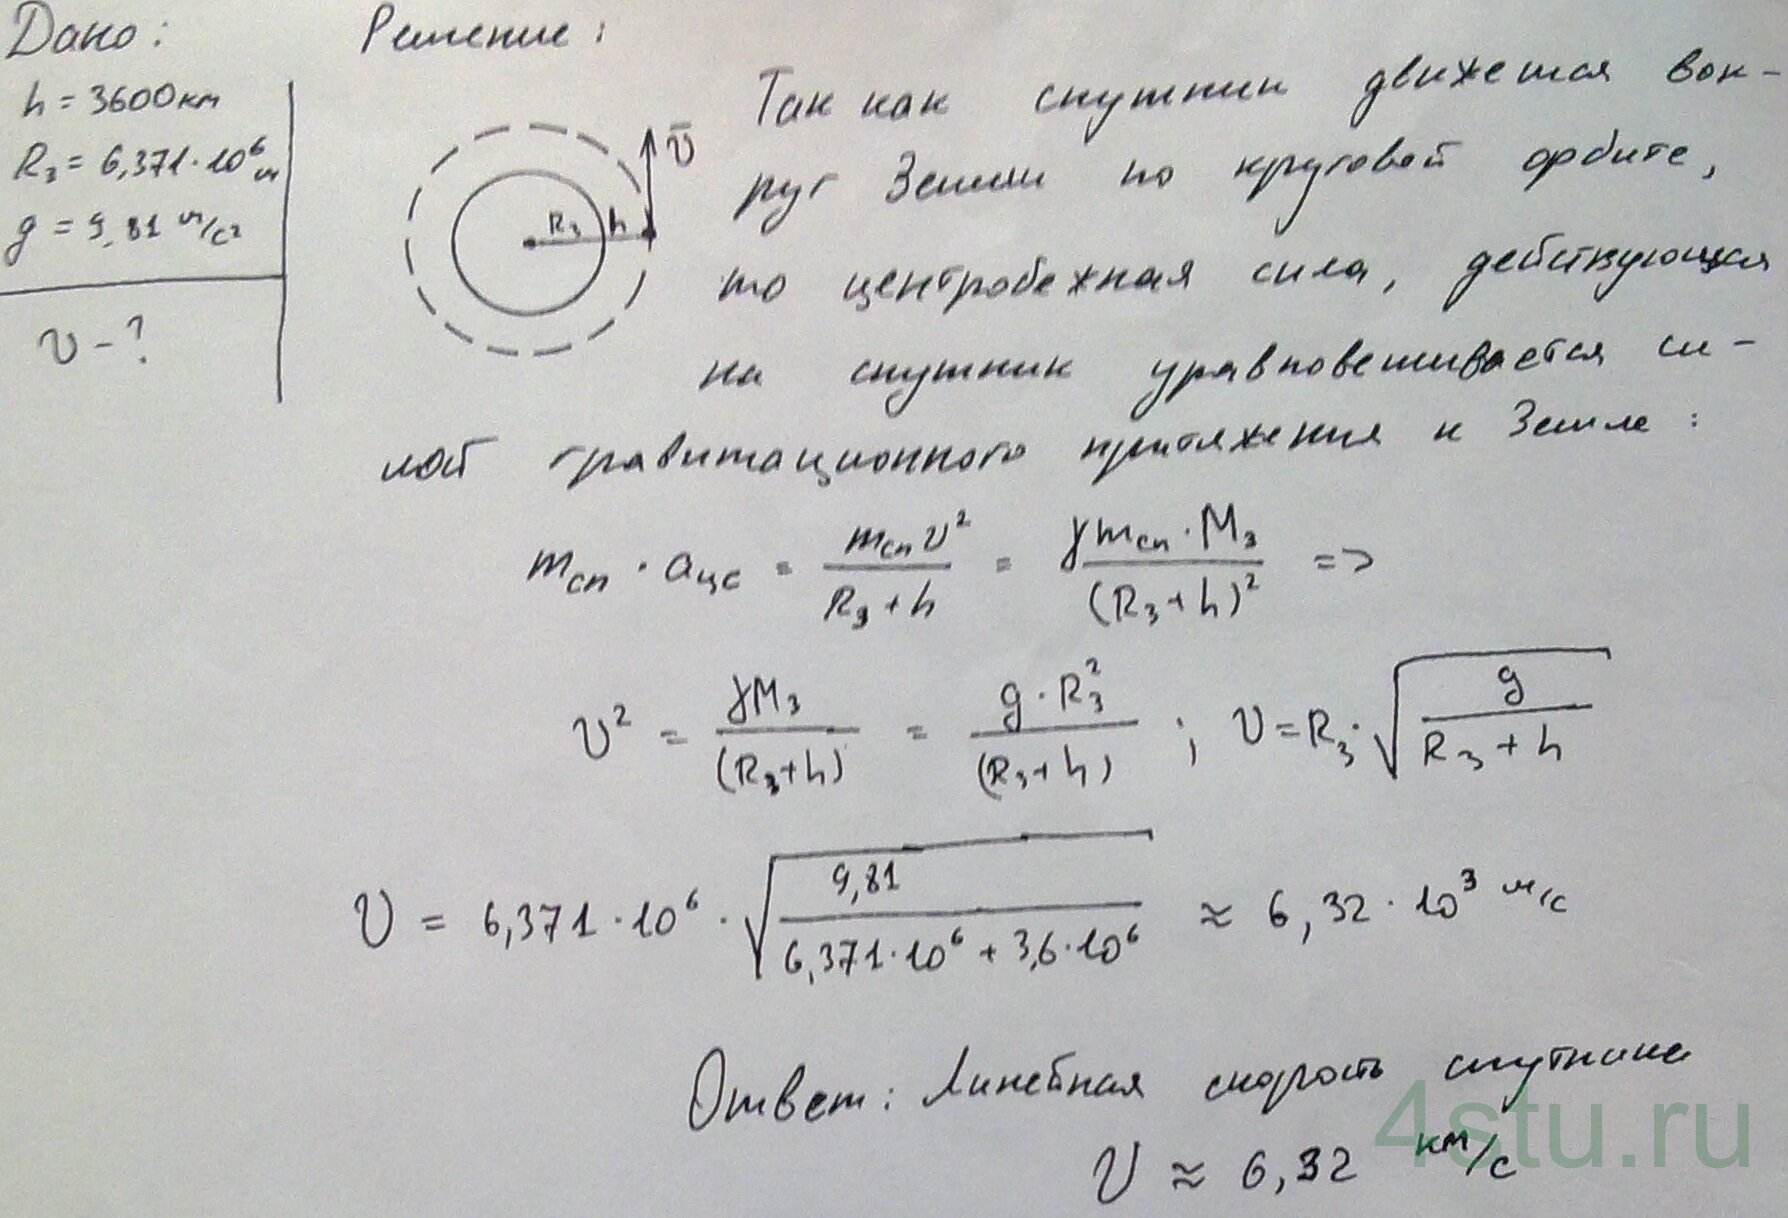 Дано:
h = 3600 км
Rз = 6,371·10⁶ м
g = 9,81 м/с²
υ - ?
Решение:
Rз h ῡ
Так как спутник движется вок-
руг Земли по круговой орбите,
то центробежная сила, действующая
на спутник уравновешивается си-
лой гравитационного притяжения к Земле:
mсп · aцс = mсп υ² / (Rз + h) = γ mсп · Mз / (Rз + h)² =>
υ² = γMз / (Rз + h) = g · Rз² / (Rз + h) ; υ = Rз · √(g / (Rз + h))
υ = 6,371·10⁶ · √(9,81 / (6,371·10⁶ + 3,6·10⁶)) ≈ 6,32 · 10³ м/с
Ответ: линейная скорость спутника
υ ≈ 6,32 км/с
4stu.ru